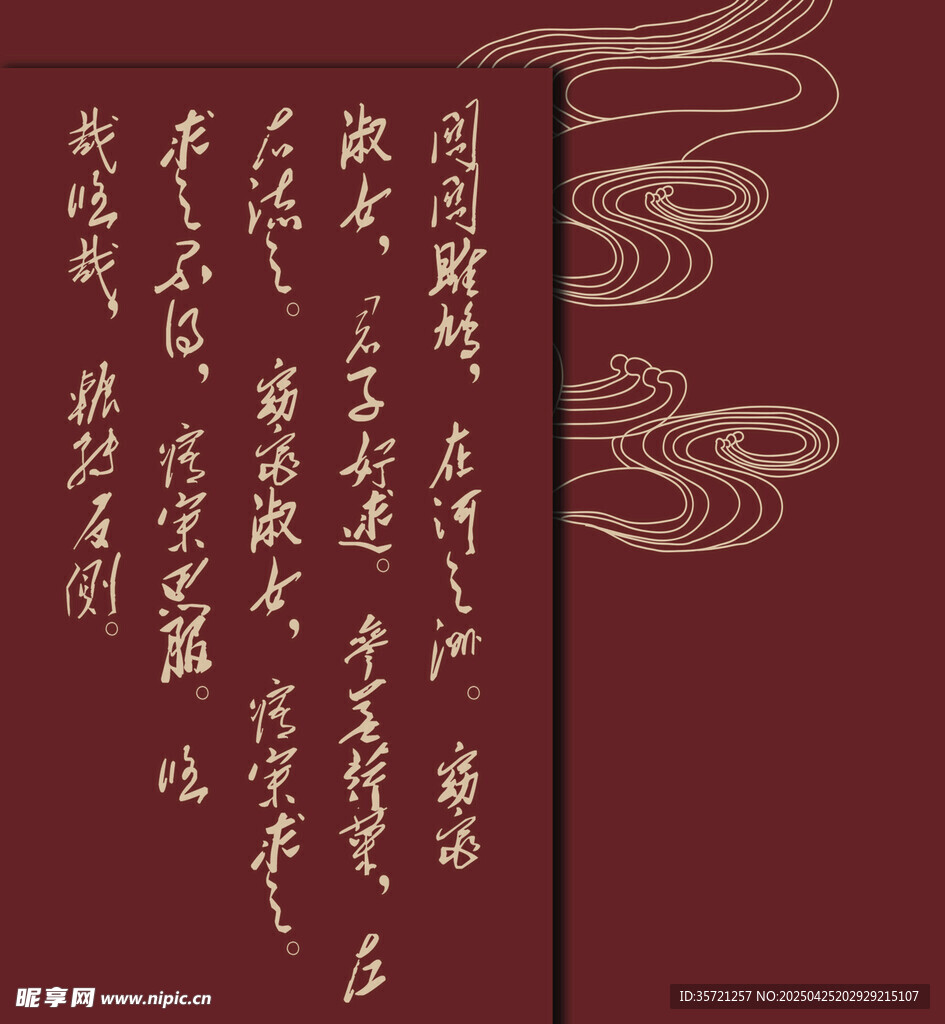 關關雎鳩，在河之洲。窈窕
淑女，君子好逑。參差荇菜，左
右流之。窈窕淑女，寤寐求之。
求之不得，寤寐思服。悠
哉悠哉，輾转反側。
昵享网 www.nipic.cn
ID:35721257 NO:20250425202929215107